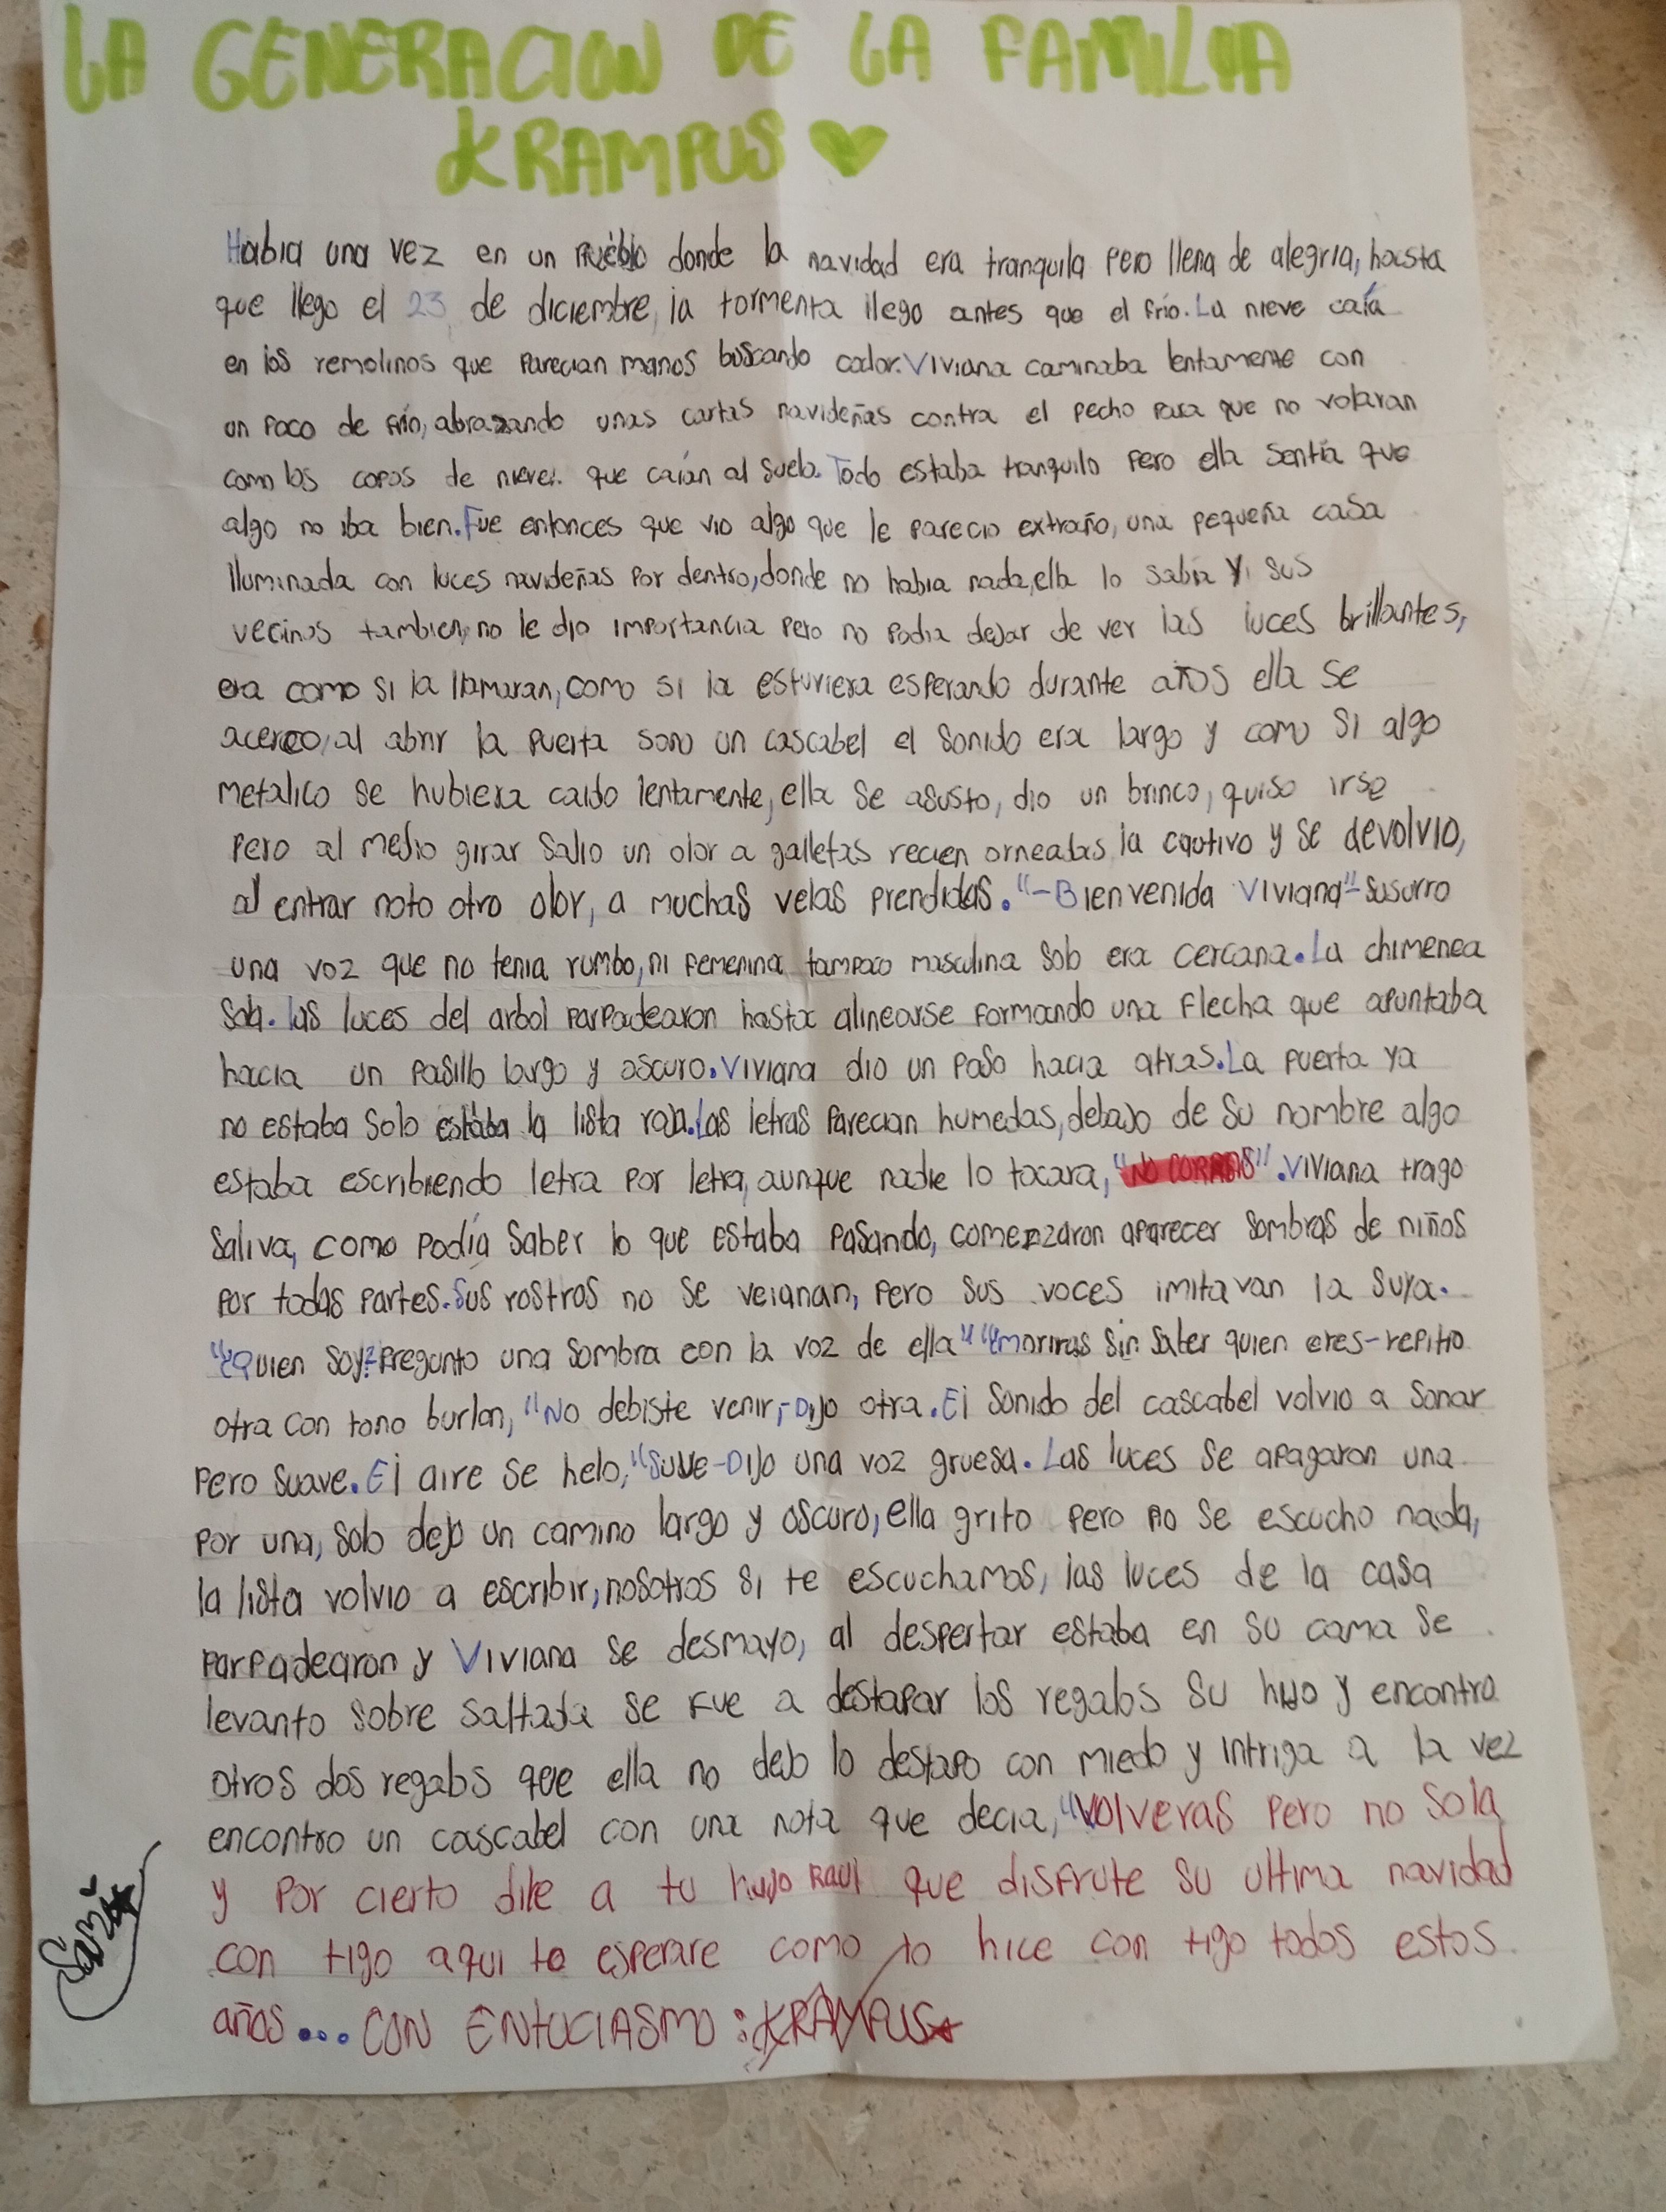 LA GENERACION DE LA FAMILIA
KRAMPUS
Habia una vez en un Pueblo donde la navidad era tranquila pero llena de alegria, hasta
que llego el 23 de diciembre, la tormenta llego antes que el frío. La nieve caía
en los remolinos que parecian manos buscando calor. Viviana caminaba lentamente con
un poco de frío, abrazando unas cartas navideñas contra el pecho para que no volaran
como los copos de nieve. que caían al suelo. Todo estaba tranquilo pero ella sentía que
algo no iba bien. Fue entonces que vio algo que le parecio extraño, una pequeña casa
iluminada con luces navideñas por dentro, donde no habia nada, ella lo sabia y sus
vecinos tambien, no le dio importancia pero no podia dejar de ver las luces brillantes,
era como si la llamaran, como si la estuviera esperando durante años ella se
acerco, al abrir la puerta sono un cascabel el sonido era largo y como si algo
metalico se hubiera caido lentamente, ella se asusto, dio un brinco, quiso irse
pero al medio girar salio un olor a galletas recien orneadas, la cautivo y se devolvio,
al entrar noto otro olor, a muchas velas prendidas. "-Bienvenida Viviana"- susurro
una voz que no tenia rumbo, ni femenina tampoco masculina solo era cercana. La chimenea
sola. las luces del arbol parpadearon hasta alinearse formando una flecha que apuntaba
hacia un pasillo largo y oscuro. Viviana dio un paso hacia atras. La puerta ya
no estaba solo estaba la lista roja. Las letras parecian humedas, debajo de su nombre algo
estaba escribiendo letra por letra, aunque nadie lo tocara, "NO CORRAS". Viviana trago
saliva, como podía saber lo que estaba pasando, comenzaron aparecer sombras de niños
por todas partes. Sus rostros no se veianan, pero sus voces imitavan la suya.
"¿Quien soy? pregunto una sombra con la voz de ella" "moriras sin saber quien eres-repitio
otra con tono burlon, "No debiste venir,-Dijo otra. El sonido del cascabel volvio a sonar
pero suave. El aire se helo, "SUVE-Dijo una voz gruesa. Las luces se apagaron una
por una, solo dejo un camino largo y oscuro, ella grito pero no se escucho nada,
la lista volvio a escribir, nosotros si te escuchamos, las luces de la casa
parpadearon y Viviana se desmayo, al despertar estaba en su cama se
levanto sobre saltada se fue a destapar los regalos su hijo y encontro
otros dos regalos que ella no dejo lo destapo con miedo y intriga a la vez
encontro un cascabel con una nota que decia, "Volveras pero no sola
y por cierto dile a tu hijo RAUl que disfrute su ultima navidad
con tigo aqui te esperare como lo hice con tigo todos estos
años... CON ENTUCIASMO : KRAMPUS